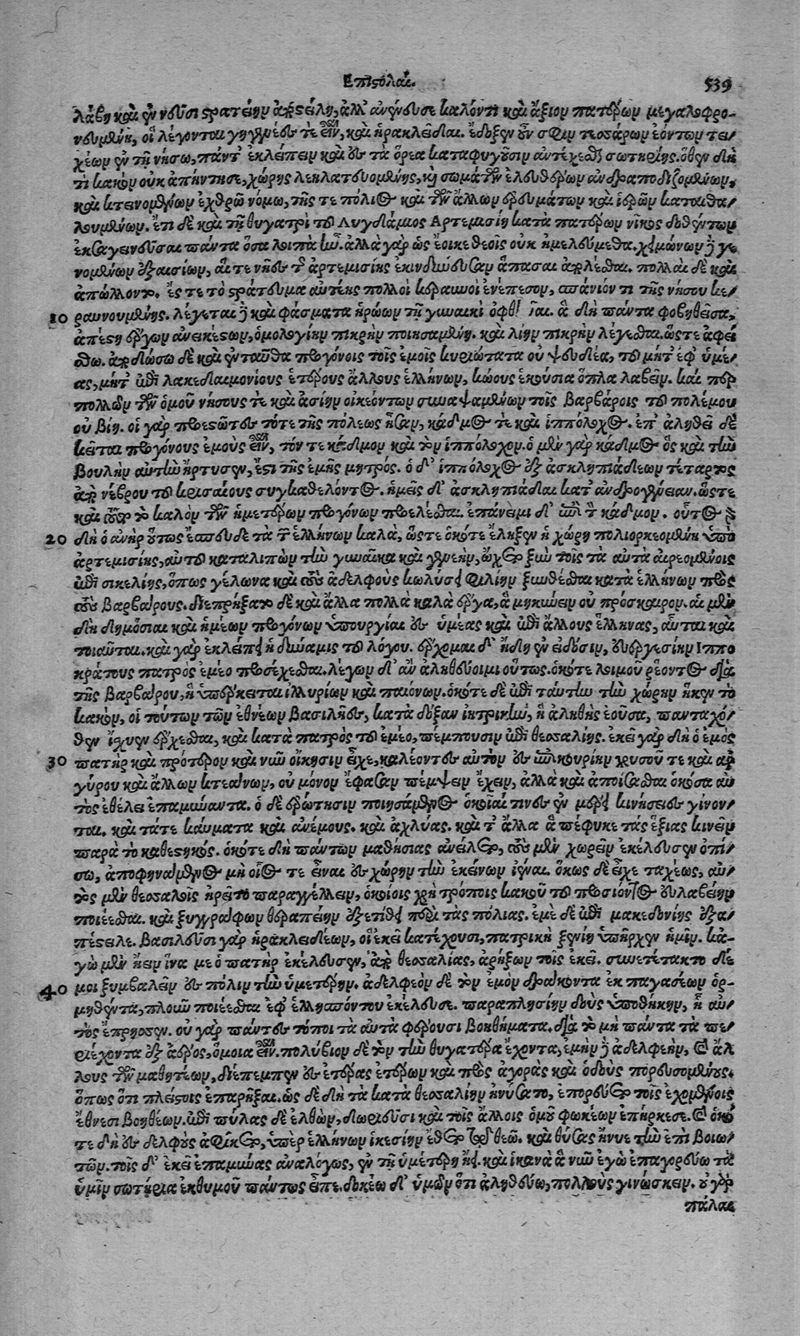 Επιστολαί. 539
λάβῃ καὶ ἐν νέυσι στρατείην ἀπαγγείλῃ, ἀλλ' ἀνένευσε καλόν τι καὶ ἄξιον πατέρων μεγαλοφρο-
νευμένη, οἳ λέγονται γηγενέες τε εἶναι, καὶ ἡρακλεῖδαι. ἔδοξεν οὖν σφιν τεσσάρων ἐόντων τει-
χέων ἐν τῇ νήσῳ, πάντ' ἐκλέπειν καὶ ἐς τὰ ὄρεα καταφυγοῦσιν ἀντέχεσθαι σωτηρίης. ὅθεν δὴ
τί κακὸν οὐκ ἀπήντησε, χώρης λεηλατευομένης, καὶ σωμάτων ἐλευθέρων ἀνδραποδιζομένων,
καὶ κτεινομένων ἐχθρῷ νόμῳ, τῆς τε πόλιος καὶ τῶν ἄλλων ἐρυμάτων καὶ ἱερῶν καταθα-
λουμένων. ἔτι δὲ καὶ τῇ θυγατρὶ τοῦ Λυγδάμιος Αρτεμισίῃ κατὰ πατέρων νῖκος δοθέντων
ἐκσαγεινεῦσαι πάντα ὅσα λοιπὰ ἦν. ἀλλὰ γὰρ ὡς ἔοικε θεοῖς οὐκ ἠμελεύμεθα. χειμώνων γὰρ γε-
νομένων ἐξαισίων, αἵ τε νῆες τῆς ἀρτεμισίης ἐκινδύνευσαν ἅπασαι ἀπολέσθαι. πολλαὶ δὲ καὶ
ἀπώλλοντο. ἔς τε τὸ στράτευμα αὐτέης πολλοὶ κεραυνοὶ ἐνέπεσον, σπάνιόν τι τῆς νήσου κε-
10 ραυνουμένης. λέγεται γὰρ καὶ φάσματα ἡρώων τῇ γυναικὶ ὀφθῆναι. ἃ δὴ πάντα φοβηθεῖσα,
ἀπέστη ἔργων ἀνεικέστων, ὁμολογίην πικρὴν ποιησαμένη. καὶ λίην πικρὴν λέγεσθαι. ὥστε ἀφεί-
σθω. ἀποδώσω δὲ καὶ ἐνταῦθα προγόνοις τοῖς ἐμοῖς κυριώτατα οὐ ψευδέα, τοῦ μήτ' ἐφ' ὑμέ-
ας, μήτ' ἐπὶ λακεδαιμονίους ἑτέρους ἄλλους ἑλλήνων, κώους ἑκούσια ὅπλα λαβεῖν. καί περ
πολλῶν τῶν ὁμοῦ νήσους τε καὶ ἀσίην οἰκεόντων συναψαμένων τοῖς βαρβάροις τοῦ πολέμου
οὐ βίῃ. οἱ γὰρ προεστῶτες τότε τῆς πόλεως ἦσαν, κάδμος τε καὶ ἱππόλοχος. ἐπ' ἀληθεῖ δὲ
κεῖται προγόνους ἐμοὺς εἶναι, τόν τε κάδμον καὶ τὸν ἱππόλοχον. ὁ μὲν γὰρ κάδμος ὃς καὶ τὴν
βουλὴν αὐτὴν ἤρτυσεν, ἐστὶ τῆς ἐμῆς μητρός. ὁ δ' ἱππόλοχος ἐξ ἀσκληπιάδεων τέταρτος
ἀπὸ νέβρου τοῦ κρισαίους συγκαθελόντος. ἡμεῖς δ' ἀσκληπιάδαι κατ' ἀνδρογένειαν. ὥστε
καὶ τοῦτο τὸ καλὸν τῶν ἡμετέρων προγόνων προλέεσθαι. ἐπάνειμι δ' ἐπὶ τὸν κάδμον. οὗτος γὰρ
20 δὴ ὁ ἀνὴρ οὕτως ἔσπευδε τὰ τῶν ἑλλήνων καλὰ, ὥστε ὁκότε ἔληξεν ἡ χώρη πολιορκεομένη ὑπὸ
ἀρτεμισίης, αὐτοῦ καταλιπὼν τὴν γυναῖκα καὶ γενεὴν, ὤχετο ξὺν τοῖς τὰ αὐτὰ αἱρεομένοις
ἐπὶ σικελίης, ὅπως γέλωνα καὶ τοὺς ἀδελφοὺς κωλύσῃ φιλίην ξυνθέσθαι κατὰ ἑλλήνων πρὸς
τοὺς βαρβάρους. διεπρήξατο δὲ καὶ ἄλλα πολλὰ καλὰ ἔργα, ἃ μηκύνειν οὐ πρόσκαιρον. αἱ μὲν
δὴ δημόσιαι καὶ ἡμέων προγόνων ὑπουργίαι ἐς ὑμέας καὶ ἐπὶ ἄλλους ἕλληνας, αὗται καὶ
τοιαῦται. καὶ γὰρ ἐκλείπει ἡ δύναμις τοῦ λόγου. ἔρχομαι δ' ἤδη ἐν εἰδόσιν, εὐεργεσίην ἱππο
κράτους πατρὸς ἐμέο προσέχεσθαι. λέγων δ' ἂν ἀληθεύοιμι οὕτως. ὁκότε λοιμοῦ ῥέοντος διὰ
τῆς βαρβάρου, ἣ ὑπέρκειται ἰλλυρίων καὶ παιόνων. ὁκότε δὲ ἐπὶ ταύτην τὴν χώρην ἧκεν τὸ
κακὸν, οἱ τούτων τῶν ἐθνέων βασιλῆες, κατὰ δόξαν ἰητρικὴν, ἣ ἀληθὴς ἐοῦσα, πανταχό-
θεν ἰσχὺν ἔρχεσθαι, καὶ κατὰ πατρὸς τοῦ ἐμέο, πέμπουσιν ἐπὶ θεσσαλίης. ἐκεῖ γὰρ δὴ ὁ ἐμὸς
30 πατὴρ καὶ πρότερον καὶ νῦν οἴκησιν εἶχε, καλέοντες αὐτὸν ἐς ἐπικουρίην χρυσοῦ τε καὶ ἀρ
γύρου καὶ ἄλλων κτεάνων, οὐ μόνον ἔφασαν πέμψειν ἔχειν, ἀλλὰ καὶ ἀποίσεσθαι ὁκόσα αὐ
τὸς ἐθέλει ἐπαμύναντα. ὁ δὲ ἐρώτησιν ποιησάμενος ὁκοῖαί τινες ἐν μέρει κινήσεες γίνον-
ται. καὶ τάτε καύματα καὶ ἀνέμους. καὶ ἀχλύας. καὶ τ' ἄλλα ἃ πέφυκε τὰς ἕξιας κινεῖν
παρὰ τὸ καθεστηκός. ὁκότε δὴ πάντων μαθήσιας ἀνείλετο, τοὺς μὲν χωρεῖν ἐκέλευσεν ὀπί-
σω, ἀποφηνάμενος μὴ οἷός τε εἶναι ἐς χώρην τὴν ἐκείνων ἰέναι. ὅκως δὲ εἶχε ταχέως, αὐ-
τὸς μὲν θεσσαλοῖς ᾑρεῖτο παραγγέλλειν, ὁκοίοις χρὴ τρόποις κακοῦ τοῦ προσιόντος εὐλαβείην
ποιέεσθαι. καὶ ξυγγράφων θεραπείην ἐξετίθει περὶ τὰς πόλιας. ἐμὲ δὲ ἐπὶ μακεδονίης ἐξα-
πέστειλε. βασιλεῦσι γὰρ ἡρακλειδέων, οἳ ἐκεῖ κατέχουσι, πατρικὴ ξενίη ὑπῆρχεν ἡμῖν. κἀ-
γὼ μὲν ᾖειν ἵνα με ὁ πατὴρ ἐκέλευσεν, ἀπὸ θεσσαλίας, ἀρήξων τοῖς ἐκεῖ. συνετέτακτο δέ
40 μοι ξυμβαλεῖν ἐς πόλιν τὴν ὑμετέρην. ἀδελφεὸν δὲ τὸν ἐμὸν δράκοντα ἐκ παγασέων ὁρ-
μηθέντα, πλοῦν ποιέεσθαι ἐφ' ἑλλησπόντου ἐκέλευσε. παραπλησίην δοὺς ὑποθήκην, ᾗ αὐ-
τὸς ἔπρησσεν. οὐ γὰρ πάντες τόποι τὰ αὐτὰ φέρουσι βοηθήματα. διὰ τὸ μὴ πάντα τὰ πε-
ριέχοντα ἐξ ἀέρος, ὅμοια εἶναι. πολύβιον δὲ τὸν τὴν θυγατέρα ἔχοντα, ἐμὴν γὰρ ἀδελφεὴν, καὶ ἄλ
λους τῶν μαθητέων, διέπεμπεν ἐς ἑτέρας ἑτέρων καὶ πρὸς ἀγορὰς καὶ ὁδοὺς πορευσομένους.
ὅπως ὅτι πλείστοις ἐπαρήξαι. ὡς δὲ δὴ τὰ κατὰ θεσσαλίην ἠνύσατο, ἐπορεύετο τοῖς ἐχομένοις
ἔθνεσι βοηθέων. ἐπὶ πύλας δὲ ἐλθὼν, δωριεῦσι καὶ τοῖς ἄλλοις ὁμοῦ φωκέων ἐπήρκεσε. καὶ ὁκό
τε δὴ ἐς δελφοὺς ἀφίκετο, ὑπὲρ ἑλλήνων ἱκεσίην ἔθετο τῷ θεῷ. καὶ θύσας ἤνυε τὴν ἐπὶ βοιω-
τῶν. τοῖς δ' ἐκεῖ ἐπαμύνας ἀναλόγως, ἐν τῇ ὑμετέρῃ ἦν. καὶ ἱκανὰ ἃ νῦν ἐγὼ ἐπαγορεύω τὰ
ὑμῖν σωτήρια ἐκθύμου πάντως εἶπε. δοκέω δ' ὑμῶν ὅτι ἀληθεύω, πολλοὺς γινώσκειν. οὐ γὰρ
πάλαι